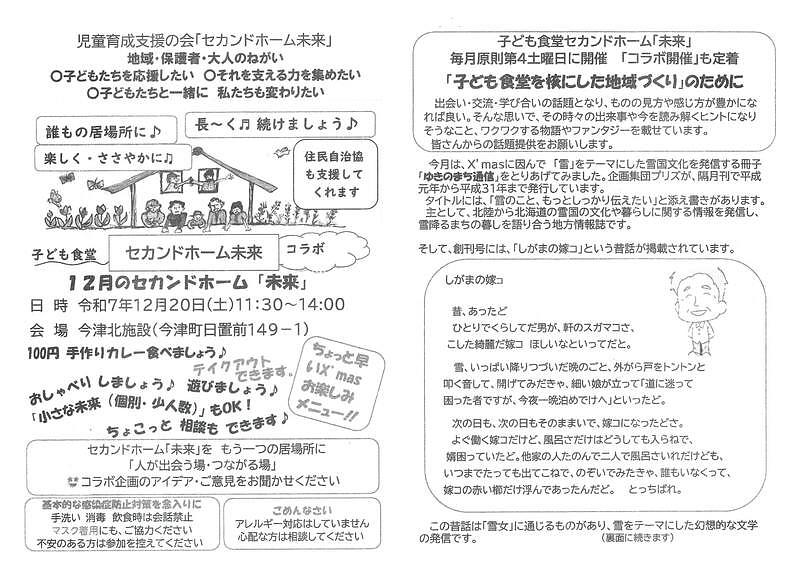 児童育成支援の会「セカンドホーム未来」
地域・保護者・大人のねがい
〇子どもたちを応援したい　〇それを支える力を集めたい
〇子どもたちと一緒に　私たちも変わりたい
誰もの居場所に♪
長～く♬続けましょう♪
楽しく・ささやかに♫
住民自治協
も支援して
くれます
子ども食堂
セカンドホーム未来
コラボ
12月のセカンドホーム「未来」
日　時　令和7年12月20日(土)11:30～14:00
会　場　今津北施設(今津町日置前149－1)
100円 手作りカレー食べましょう♪
テイクアウト
できます。
おしゃべり しましょう♪　遊びましょう♪
「小さな未来（個別・少人数）」もOK!
ちょこっと 相談も できます♪
ちょっと早
いX'mas
お楽しみ
メニュー!!
セカンドホーム「未来」を　もう一つの居場所に
「人が出会う場・つながる場」
コラボ企画のアイデア・ご意見をお聞かせください
基本的な感染症防止対策を念入りに
手洗い　消毒　飲食時は会話禁止
マスク着用にも、ご協力ください
不安のある方は参加を控えてください
ごめんなさい
アレルギー対応はしていません
心配な方は相談してください
子ども食堂セカンドホーム「未来」
毎月原則第4土曜日に開催　「コラボ開催」も定着
「子ども食堂を核にした地域づくり」のために
出会い・交流・学び合いの話題となり、ものの見方や感じ方が豊かにな
れば良い。そんな思いで、その時々の出来事や今を読み解くヒントになり
そうなこと、ワクワクする物語やファンタジーを載せています。
皆さんからの話題提供をお願いします。
今月は、X'masに因んで　「雪」をテーマにした雪国文化を発信する冊子
「ゆきのまち通信」をとりあげてみました。企画集団プリズが、隔月刊で平成
元年から平成31年まで発行しています。
タイトルには、「雪のこと、もっとしっかり伝えたい」と添え書きがあります。
主として、北陸から北海道の雪国の文化や暮らしに関する情報を発信し、
雪降るまちの暮しを語り合う地方情報誌です。
そして、創刊号には、「しがまの嫁コ」という昔話が掲載されています。
しがまの嫁コ
昔、あったど
ひとりでくらしてだ男が、軒のスガマコさ、
こした綺麗だ嫁コ　ほしいなといってだと。
雪、いっぱい降りつづいだ晩のごと、外がら戸をトントンと
叩く音して、開げてみだきゃ、細い娘が立って「道に迷って
困った者ですが、今夜一晩泊めでけへ」といったど。
次の日も、次の日もそのままいで、嫁コになったどさ。
よく働く嫁コだけど、風呂さだけはどうしても入らねで、
婿困っていたど。他家の人たのんで二人で風呂さいれだけども、
いつまでたっても出てこねで、のぞいでみたきゃ、誰もいなくって、
嫁コの赤い櫛だけ浮んであったんだど。　とっちばれ。
この昔話は「雪女」に通じるものがあり、雪をテーマにした幻想的な文学
の発信です。
（裏面に続きます）